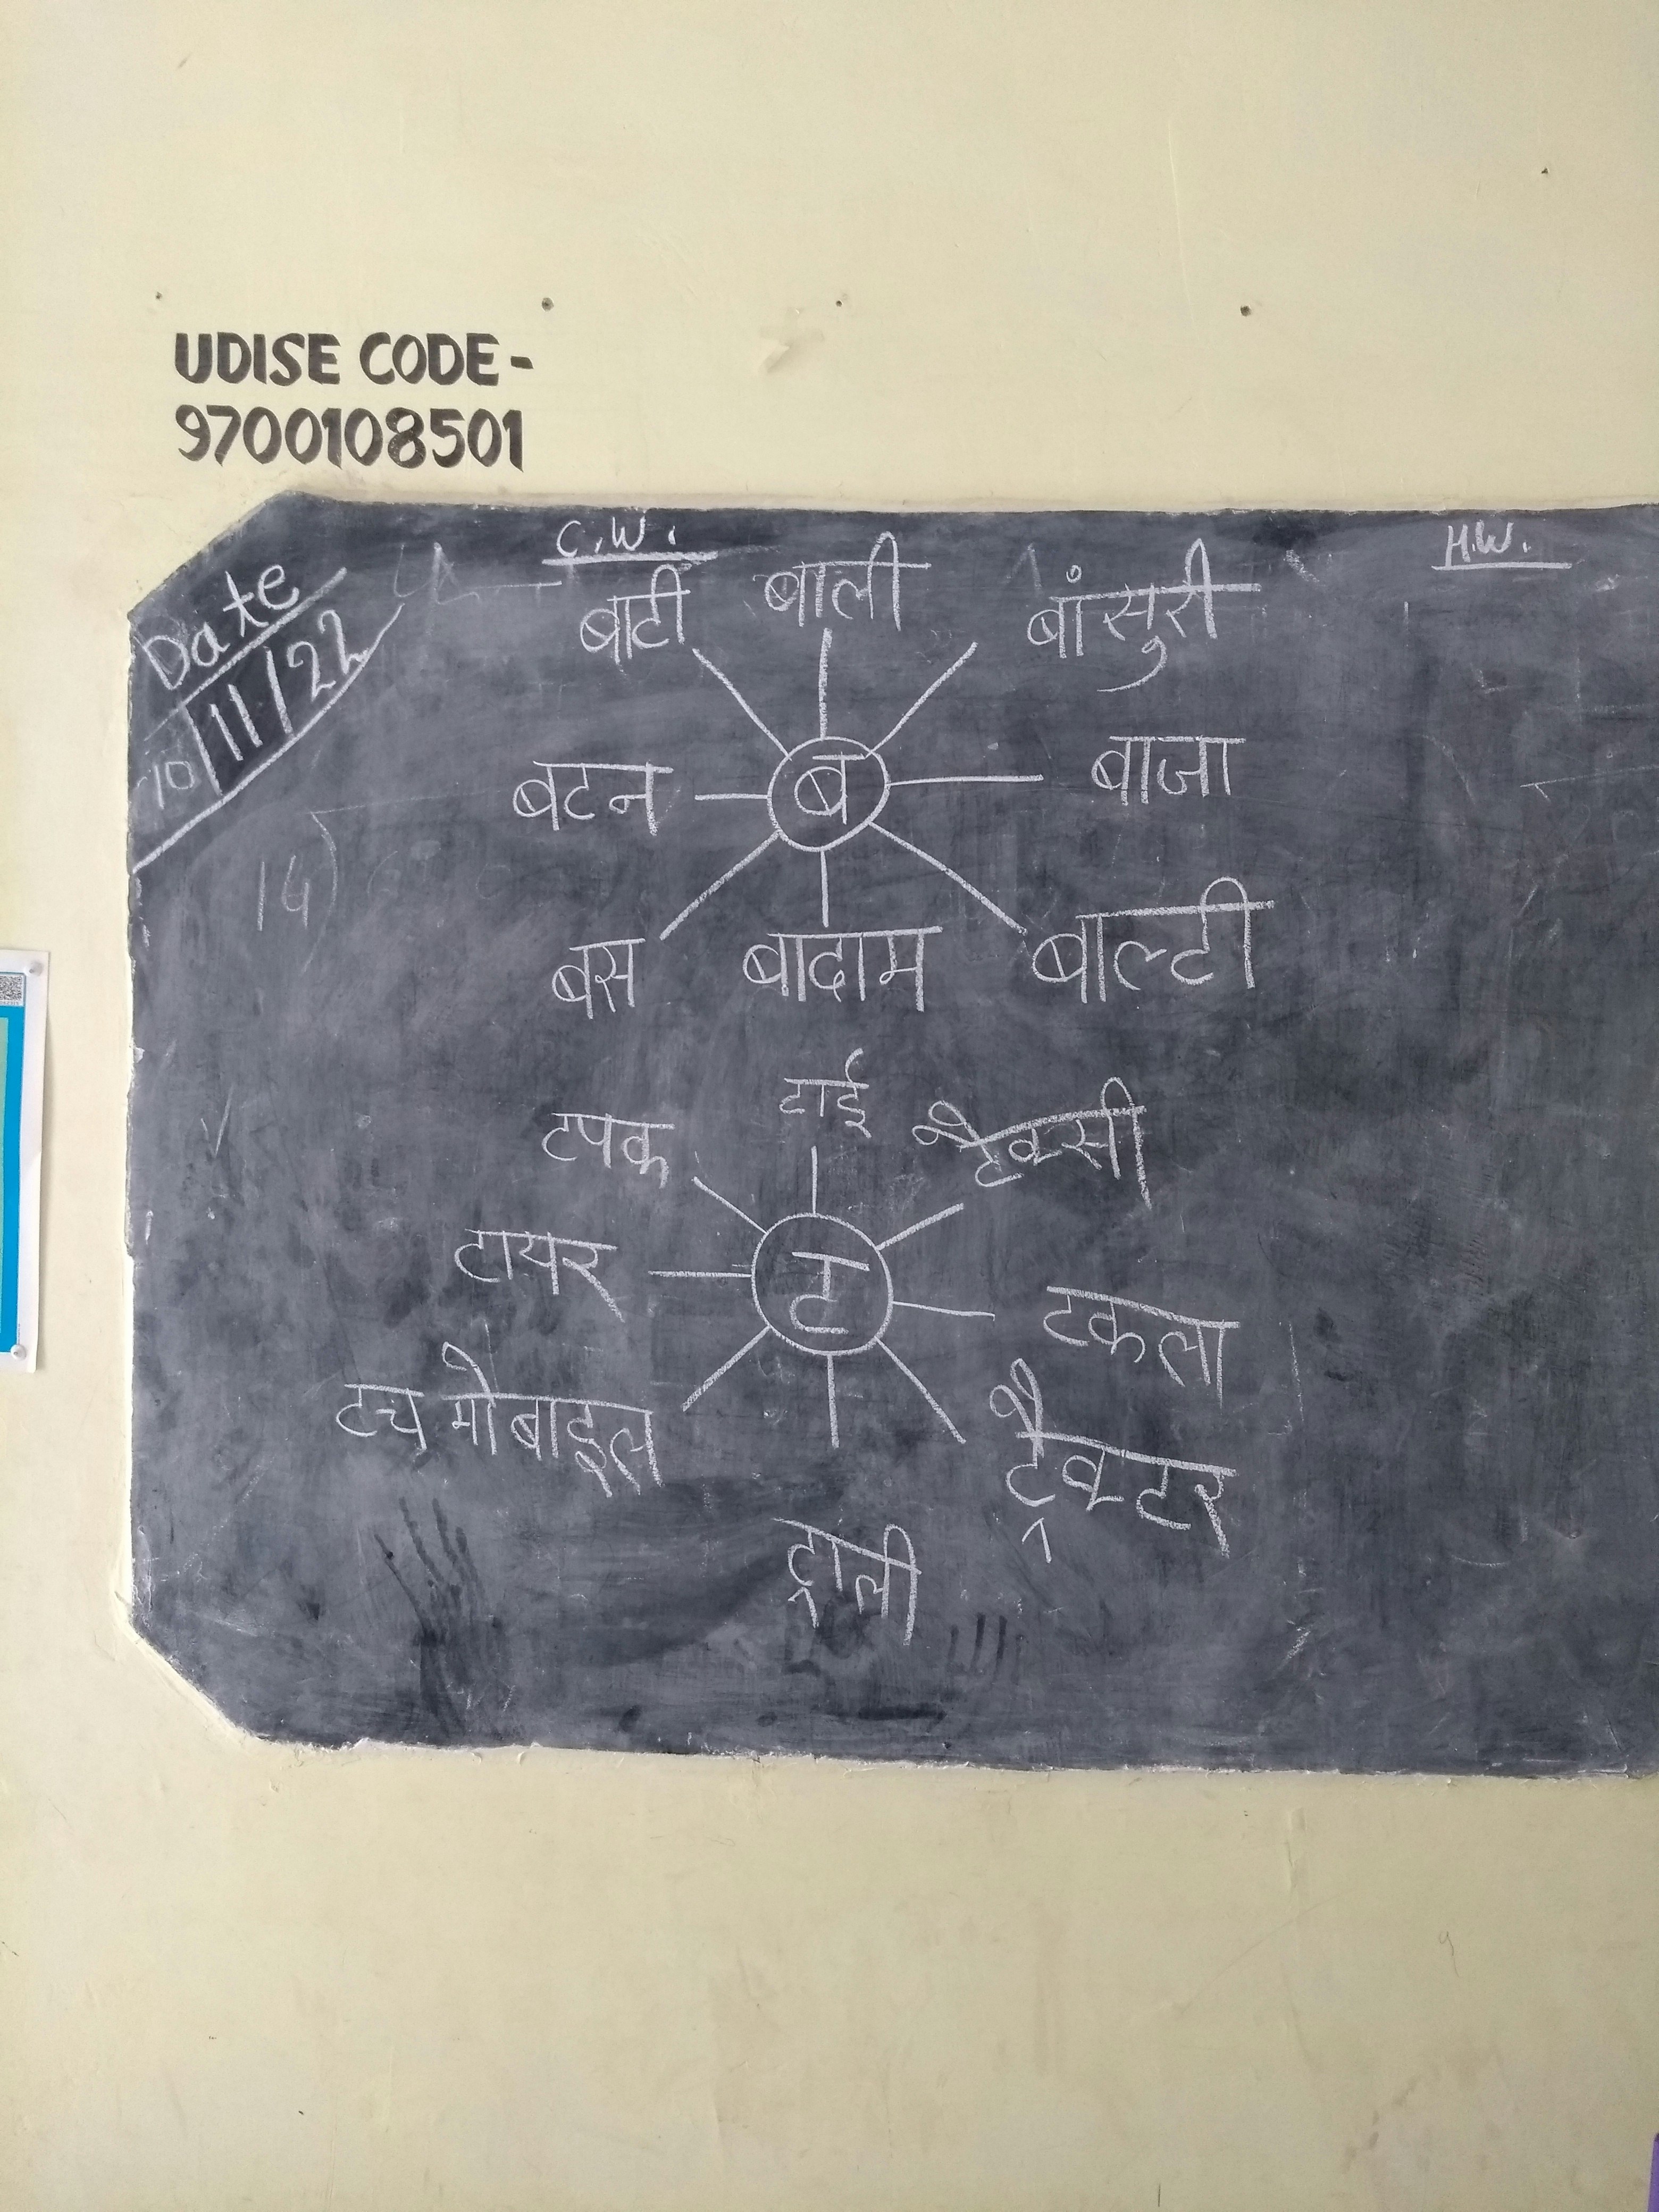 UDISE CODE-
9700108501
C.W.
H.W.
Date
10/11/22
बाटी
बाली
बांसुरी
बटन
ब
बाजा
बस
बादाम
बाल्टी
14)
टाई
टपक
टैक्सी
टायर
ट
टकला
टच मोबाइल
ट्रैक्टर
ट्राली